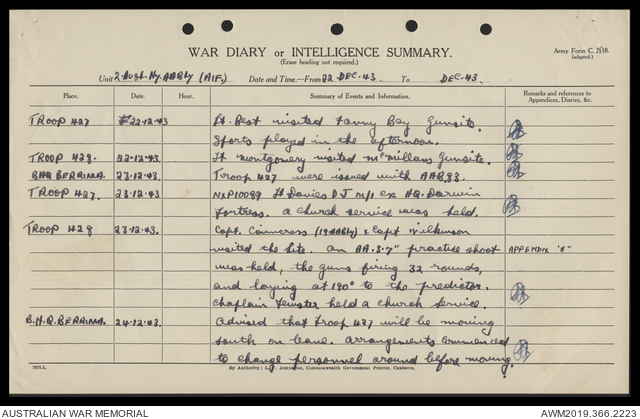 WAR DIARY or INTELLIGENCE SUMMARY.
(Erase heading not required.)
Army Form C. 2118.
(adapted.)
Unit 2 Aust. Hy. AABty (AIF) Date and Time.—From 22 DEC. 43 To DEC. 43.
Place. Date. Hour. Summary of Events and Information. Remarks and references to Appendices, Diaries, &c.
TROOP 427 22.12.43 Lt. Best visited Fanny Bay Gunsite.
Sports played in the afternoon.
TROOP 428. 22.12.43. Lt Montgomery visited McMillans Gunsite.
BHQ BERRIMA. 23.12.43. Troop 427 were issued with AAB.83.
TROOP 427. 23.12.43. NXP10089 Lt Davies D J M/I ex HQ. Darwin
Fortress. A church service was held.
TROOP 428 23.12.43. Capt. Cairncross (19AABty) & Capt Wilkinson
visited the site. An AA.3.7" practise shoot APPENDIX "A"
was held, the guns firing 32 rounds,
and laying at 190° to the predictor.
Chaplain held a church service.
B.H.Q. BERRIMA. 24.12.43. Advised that Troop 427 will be moving
south on leave. Arrangements commenced
to change personnel around before moving.
7972L. By Authority: Commonwealth Government Printer, Canberra.
AUSTRALIAN WAR MEMORIAL
AWM2019.366.2223